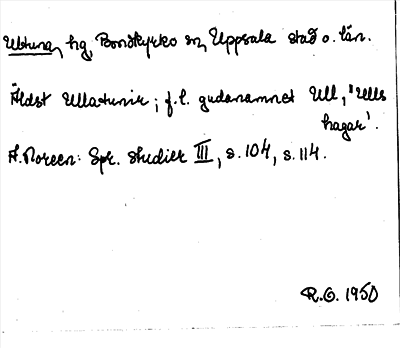 Ultuna, hg, Bondkyrko sn, Uppsala stad o. län.
Äldst Ullatunir; f.l. gudanamnet Ull, 'Ulls
hagar'.
A. Noreen: Spr. studier III, s. 104, s. 114.
R.O. 1950